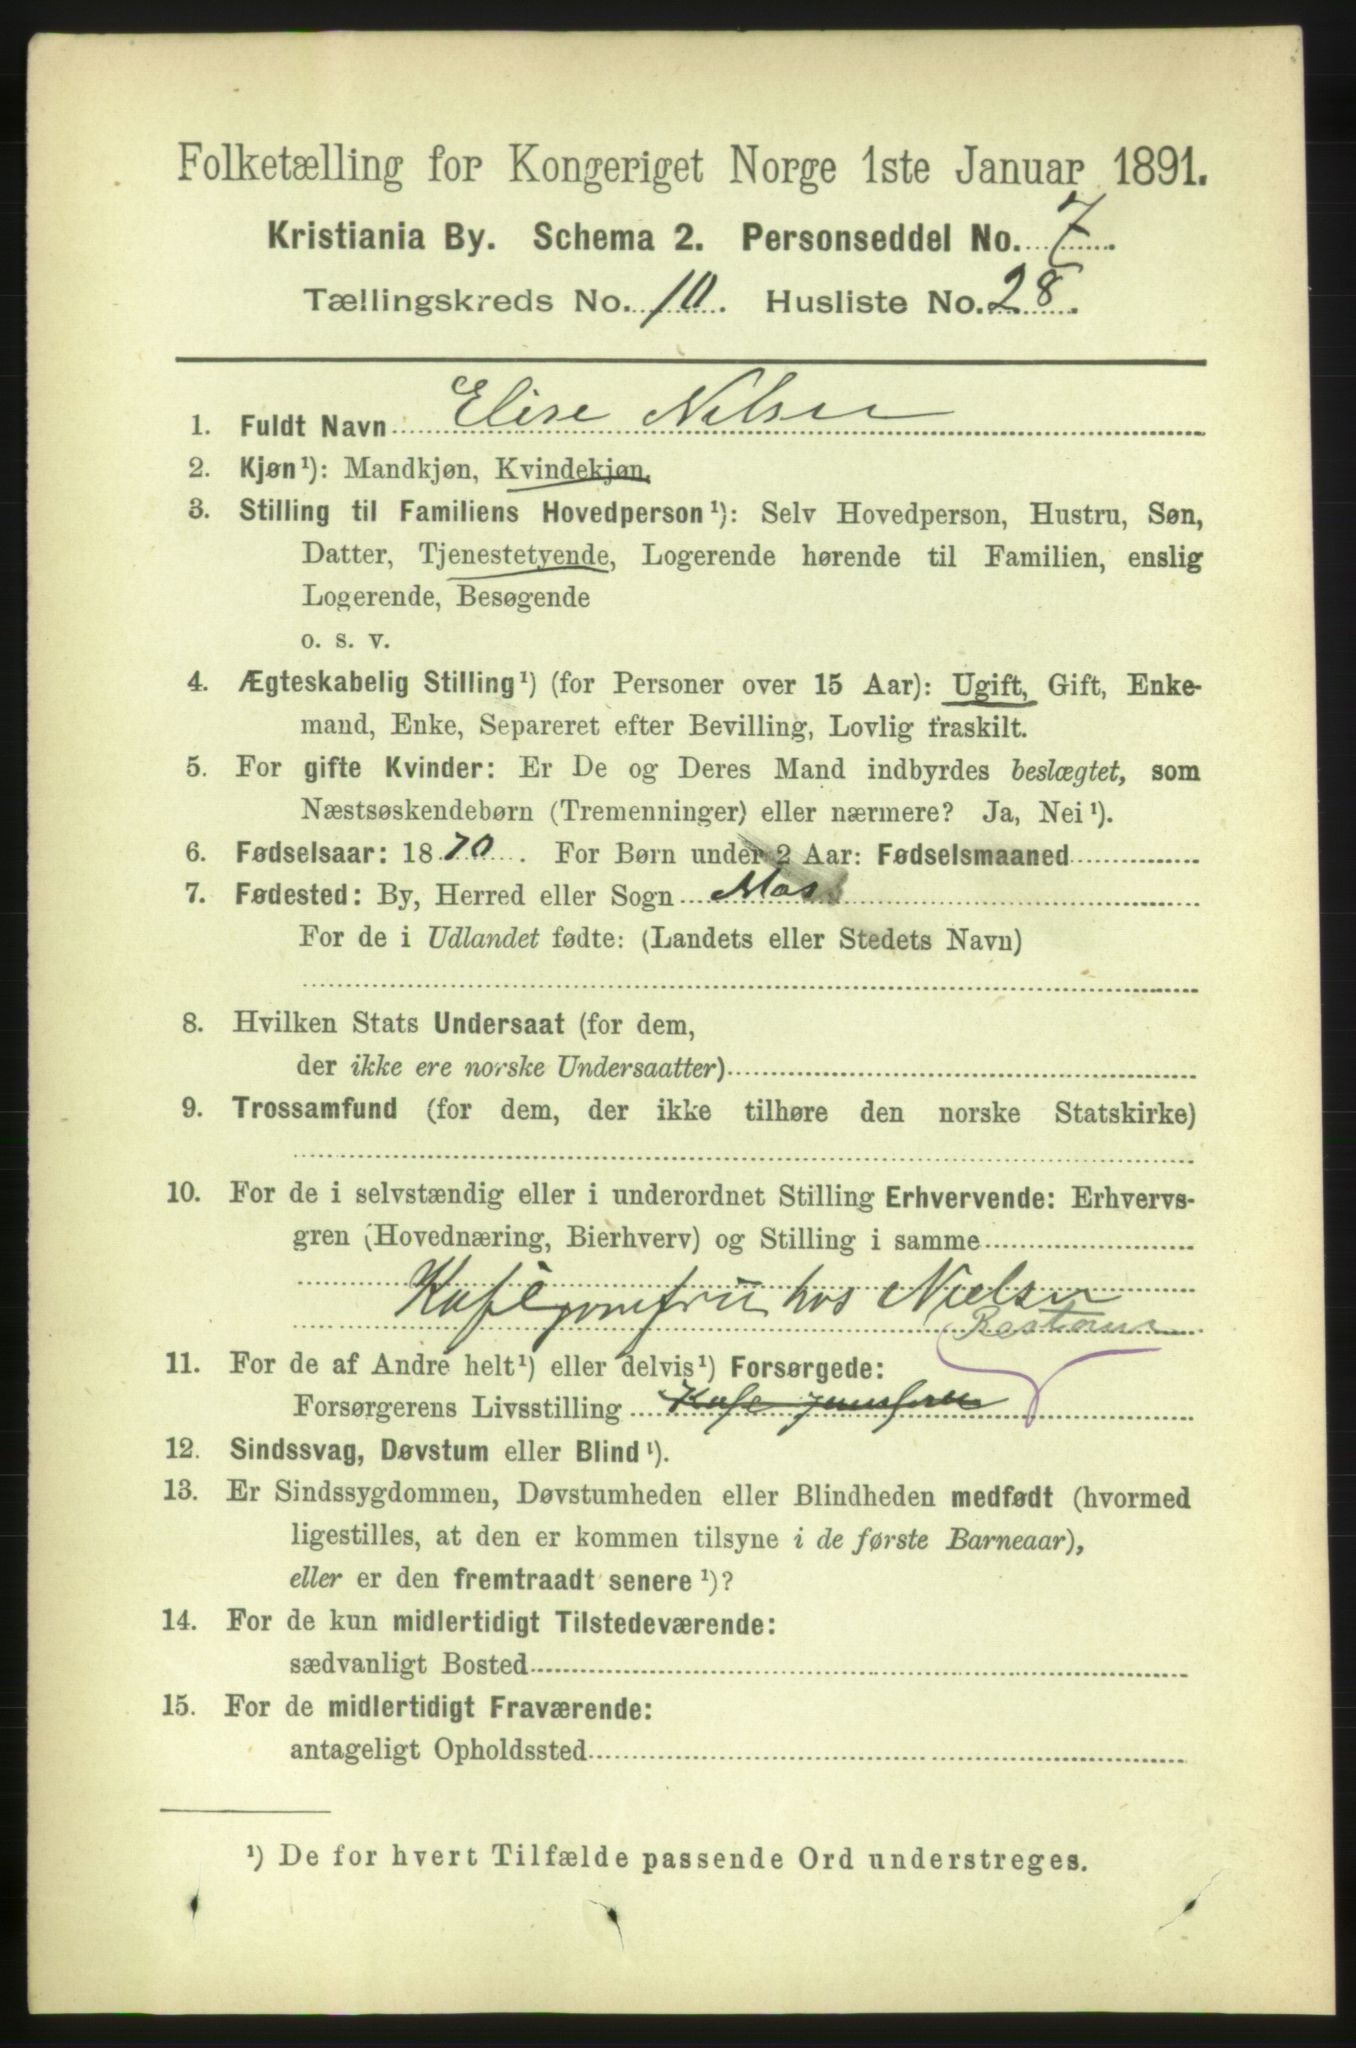 Folketælling for Kongeriget Norge 1ste Januar 1891.
Kristiania By. Schema 2. Personseddel No. 7.
Tællingskreds No. 10. Husliste No. 28.
1. Fuldt Navn Elise Nilsen
2. Kjøn¹): Mandkjøn, Kvindekjøn.
3. Stilling til Familiens Hovedperson¹): Selv Hovedperson, Hustru, Søn,
Datter, Tjenestetyende, Logerende hørende til Familien, enslig
Logerende, Besøgende
o. s. v.
4. Ægteskabelig Stilling¹) (for Personer over 15 Aar): Ugift, Gift, Enke-
mand, Enke, Separeret efter Bevilling, Lovlig fraskilt.
5. For gifte Kvinder: Er De og Deres Mand indbyrdes beslægtet, som
Næstsøskendebørn (Tremenninger) eller nærmere? Ja, Nei¹).
6. Fødselsaar: 1870. For Børn under 2 Aar: Fødselsmaaned
7. Fødested: By, Herred eller Sogn Moss
For de i Udlandet fødte: (Landets eller Stedets Navn)
8. Hvilken Stats Undersaat (for dem,
der ikke ere norske Undersaatter)
9. Trossamfund (for dem, der ikke tilhøre den norske Statskirke)
10. For de i selvstændig eller i underordnet Stilling Erhvervende: Erhvervs-
gren (Hovednæring, Bierhverv) og Stilling i samme
Kafejomfru hos Nielsen
Restaur
11. For de af Andre helt¹) eller delvis¹) Forsørgede:
Forsørgerens Livsstilling Kafe jomfru
12. Sindssvag, Døvstum eller Blind¹).
13. Er Sindssygdommen, Døvstumheden eller Blindheden medfødt (hvormed
ligestilles, at den er kommen tilsyne i de første Barneaar),
eller er den fremtraadt senere¹)?
14. For de kun midlertidigt Tilstedeværende:
sædvanligt Bosted
15. For de midlertidigt Fraværende:
antageligt Opholdssted
¹) De for hvert Tilfælde passende Ord understreges.